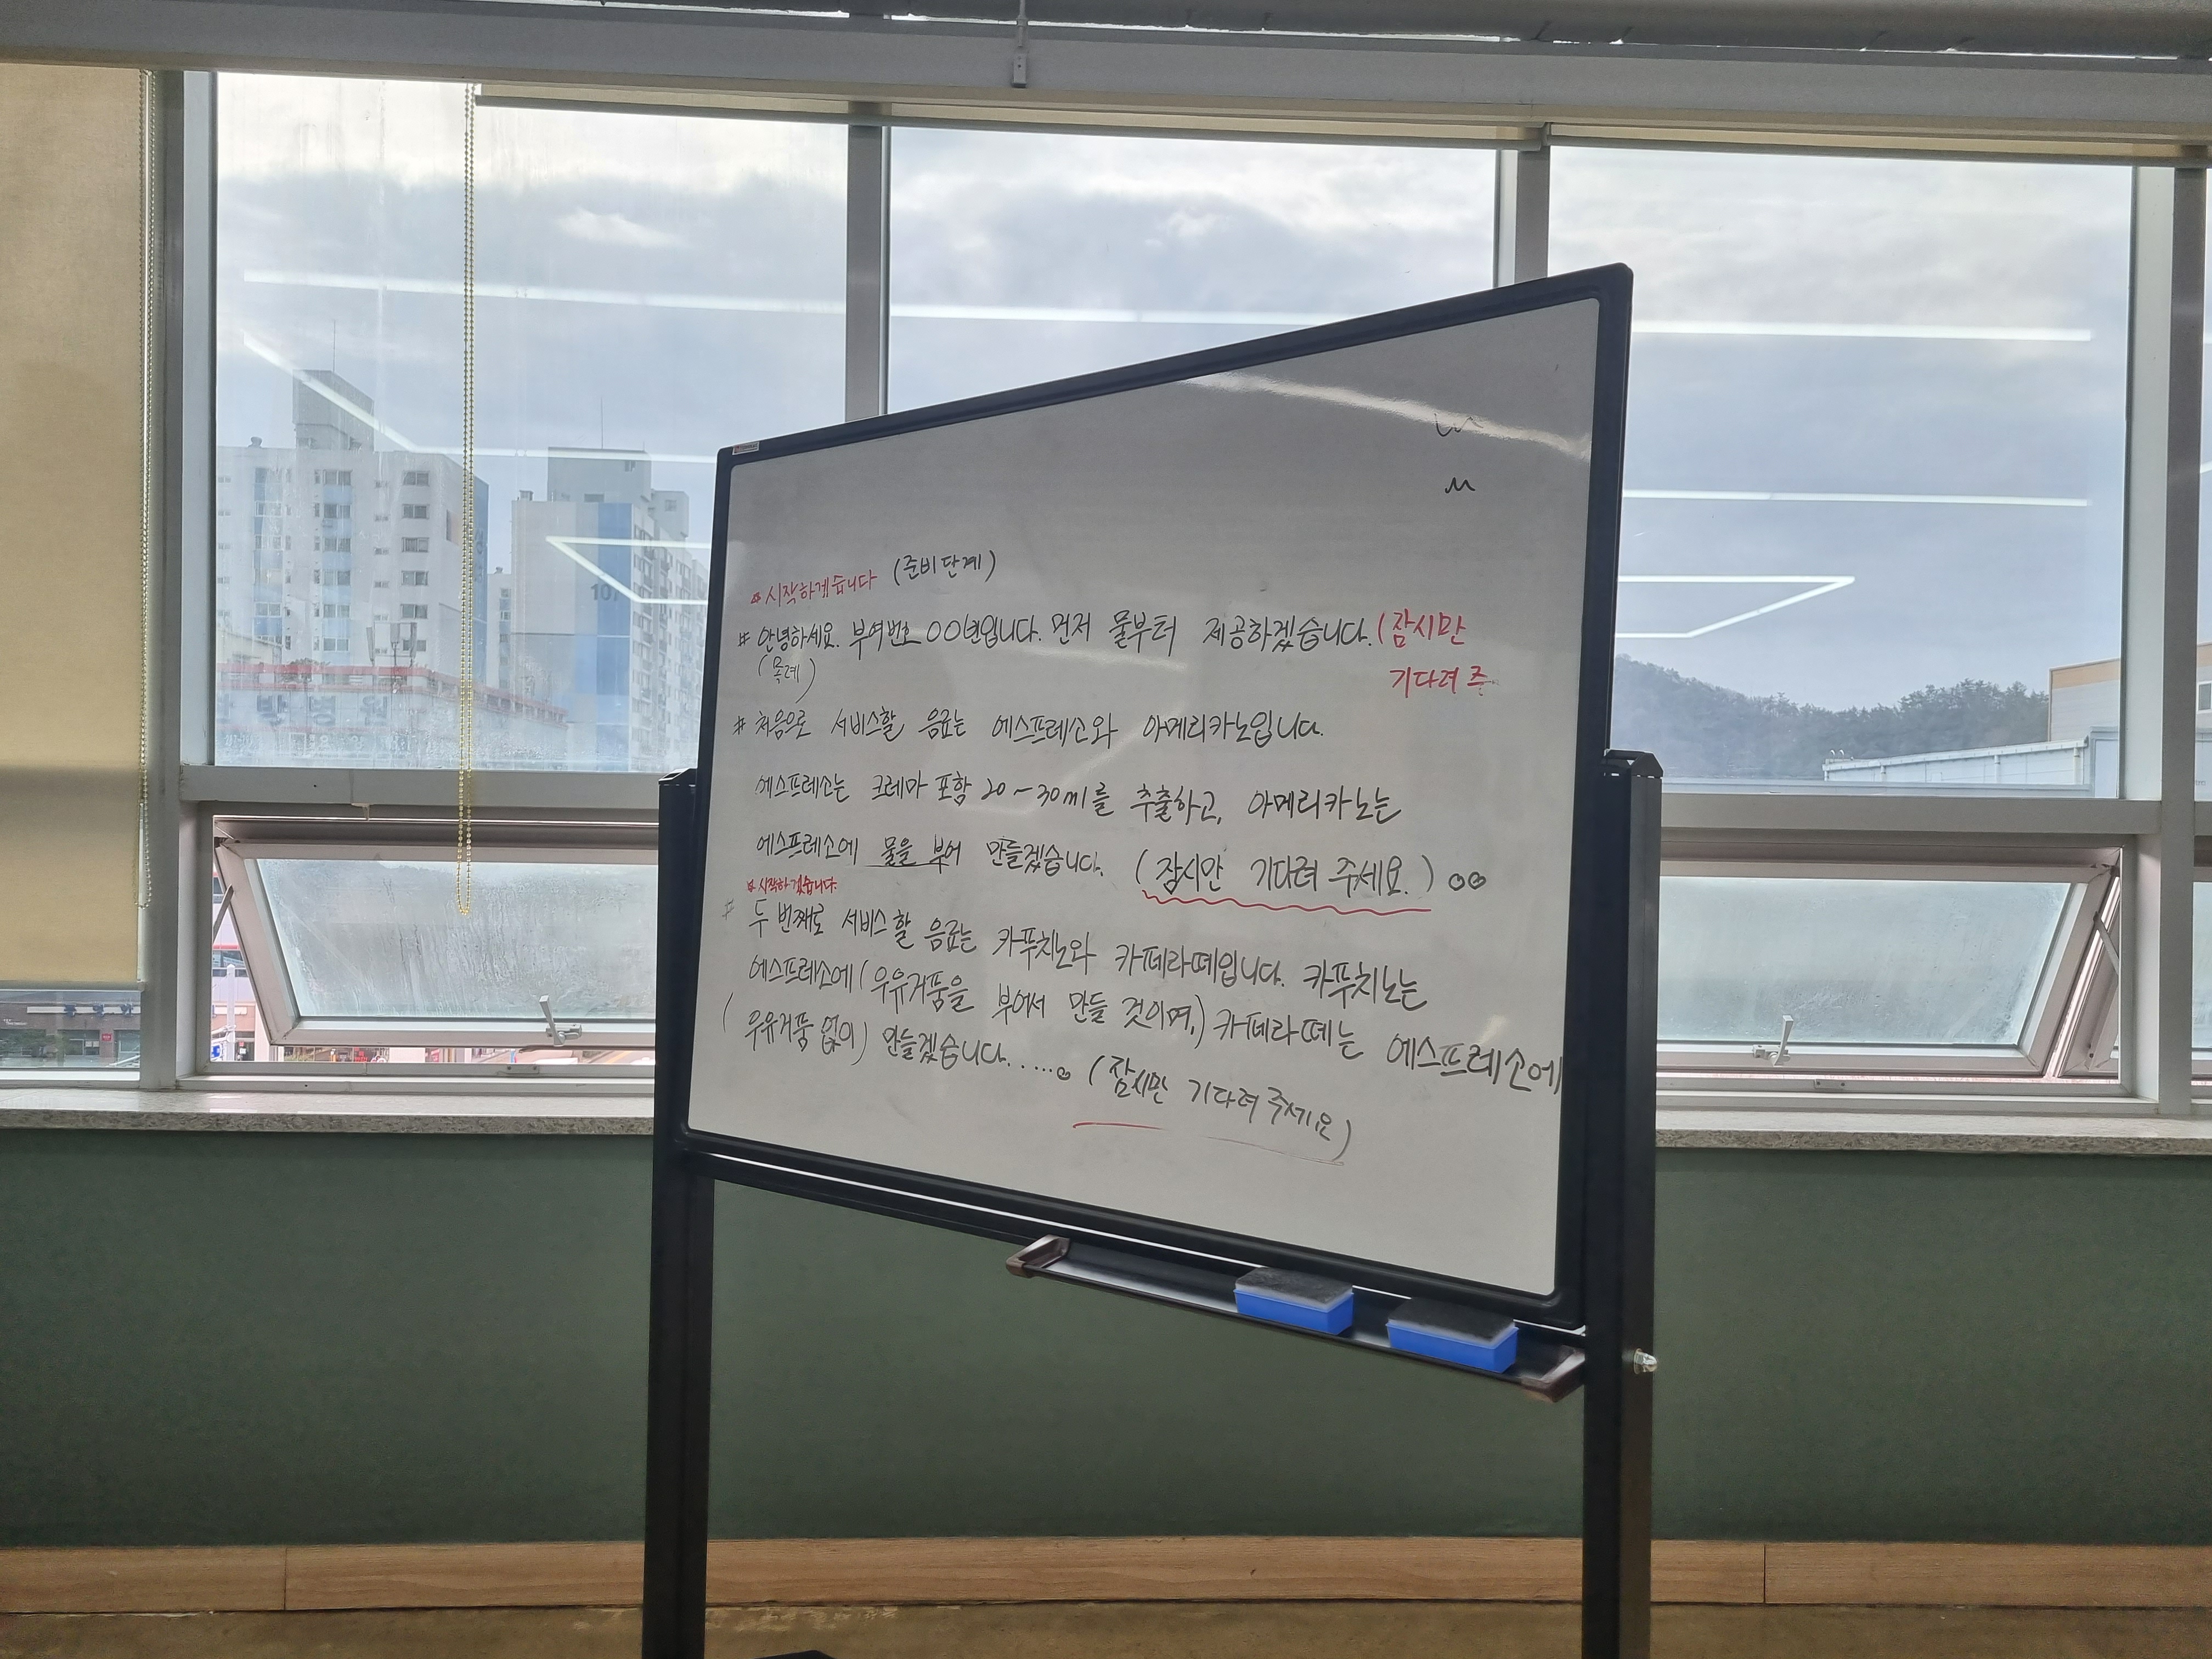 시작하게습니다 (준비단계)
# 안녕하세요. 부여번호 00번입니다. 먼저 물부터 제공하겠습니다. (잠시만
기다려 주
(목례)
# 처음으로 서비스할 음료는 에스프레소와 아메리카노입니다.
에스프레소는 크레마 포함 20~30ml를 추출하고, 아메리카노는
에스프레소에 물을 부어 만들겠습니다. (잠시만 기다려 주세요.)
시작하겠습니다.
# 두 번째로 서비스할 음료는 카푸치노와 카페라떼입니다. 카푸치노는
에스프레소에 (우유거품을 부어서 만들 것이며,) 카페라떼는 에스프레소에
(우유거품 없이) 만들겠습니다..... (잠시만 기다려 주세요)
107